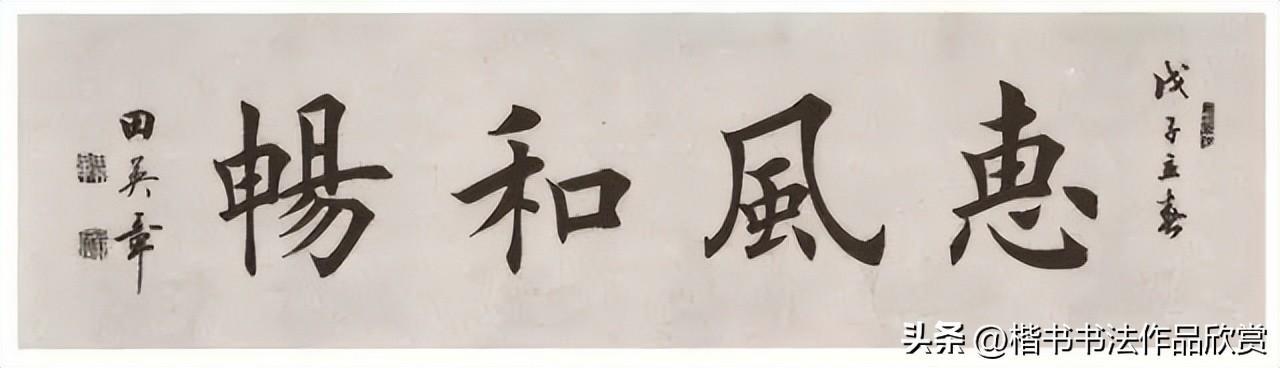 戊子立春
惠風和暢
田英章
头条@楷书书法作品欣赏